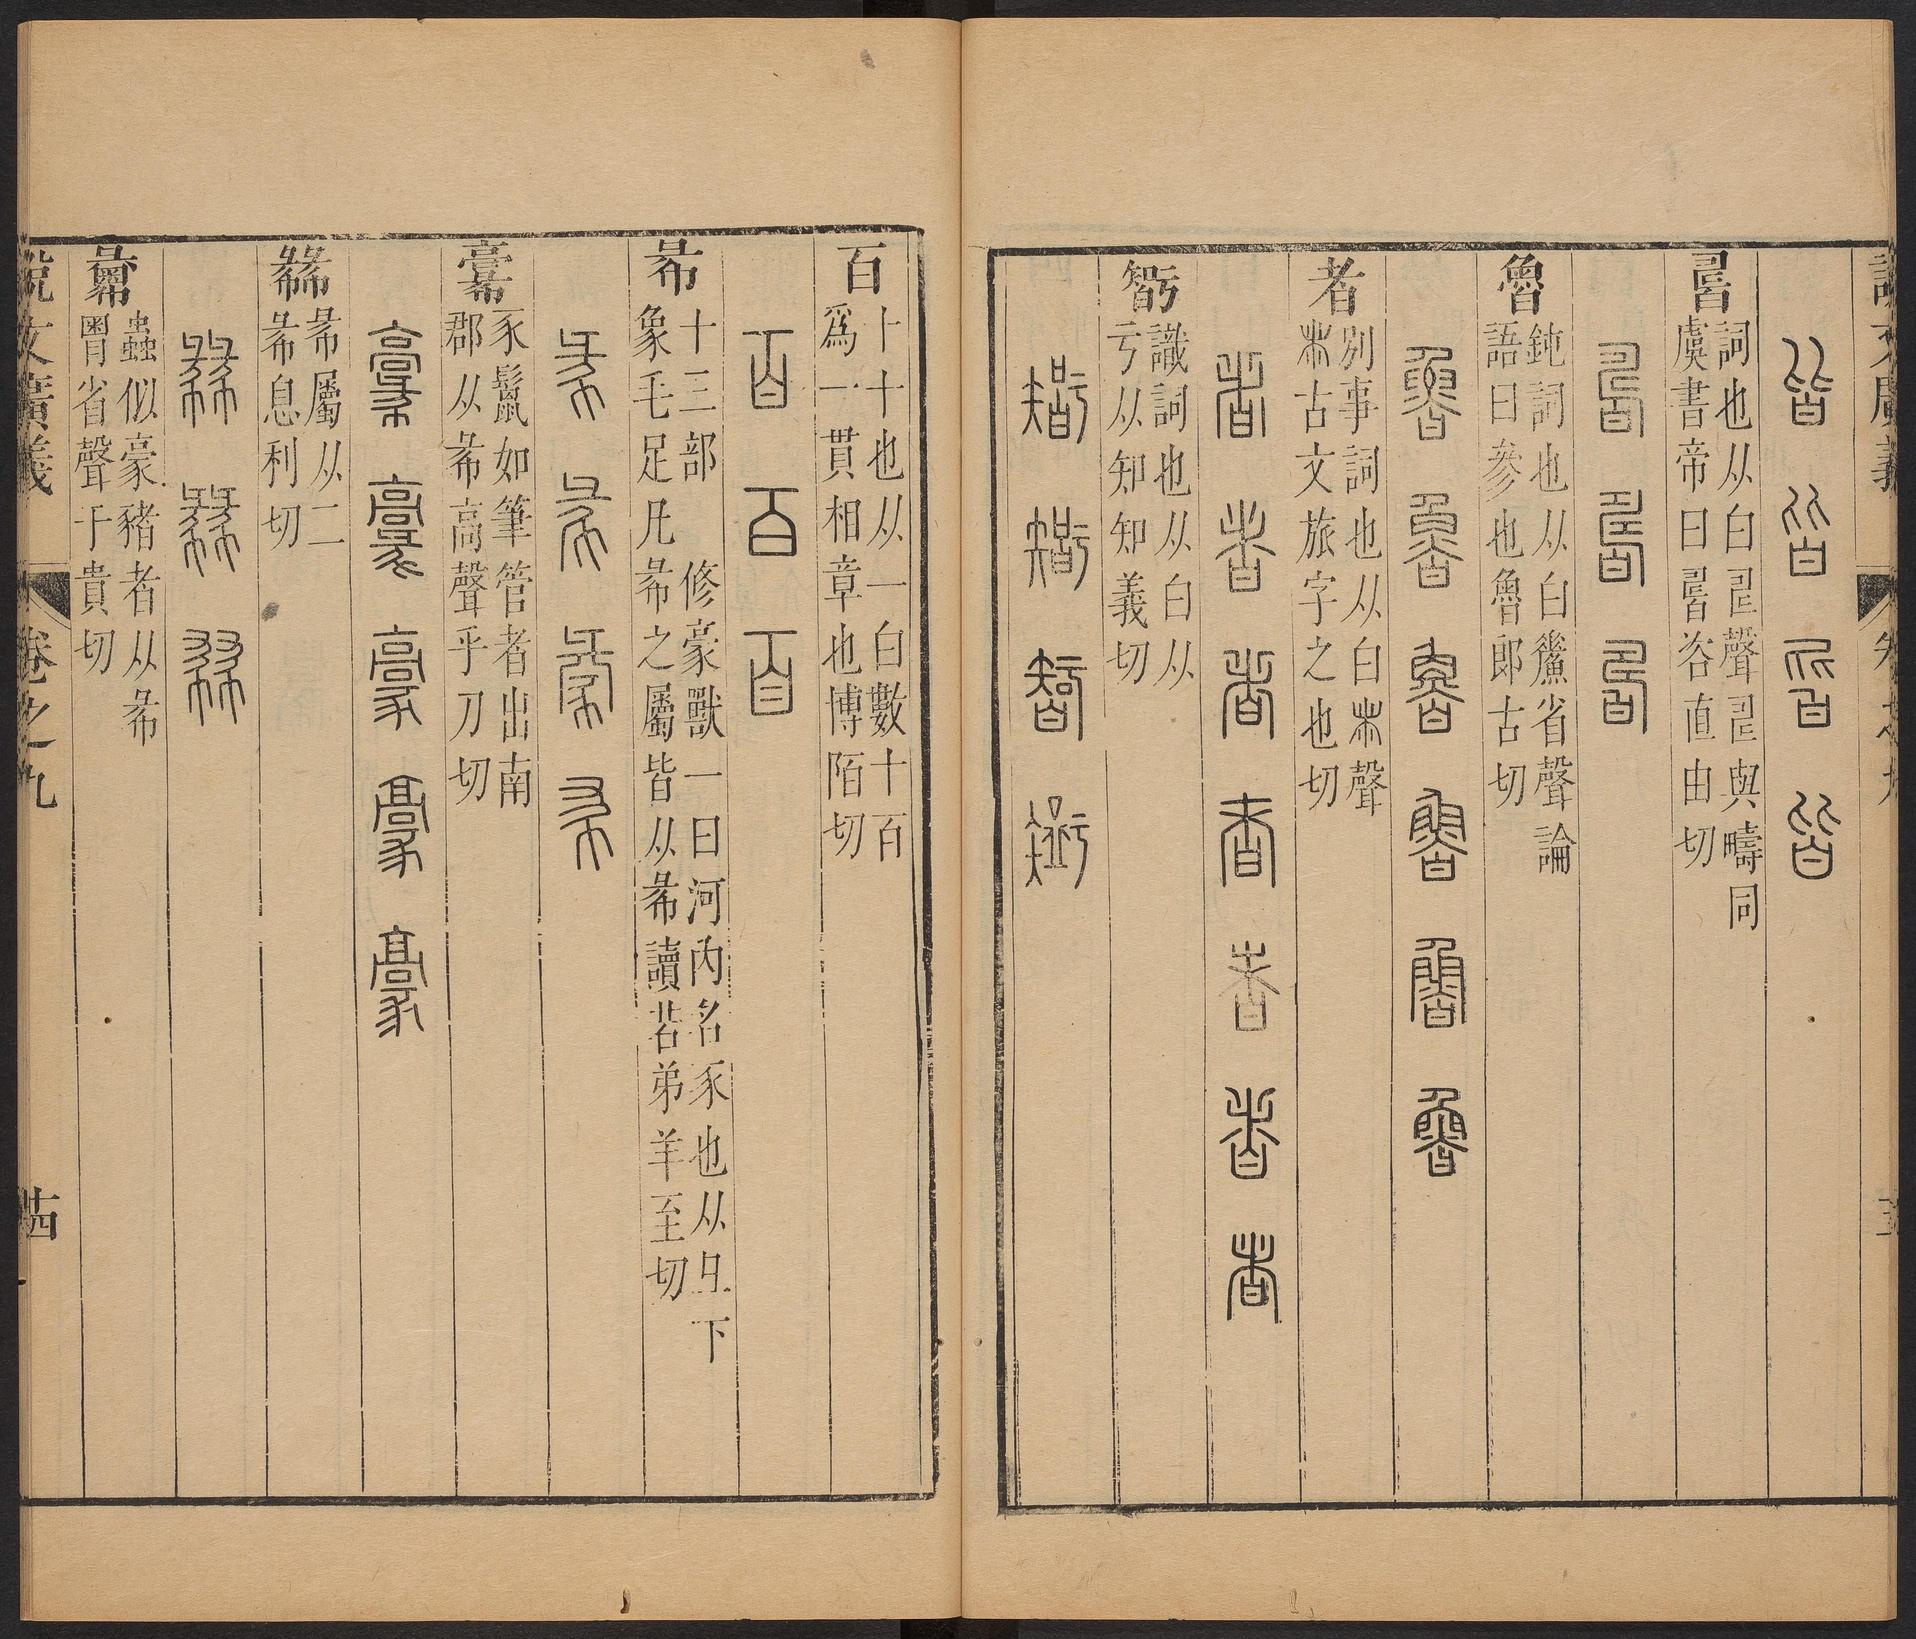 說文廣義 卷之九
皆 皆 皆 皆
𤾊
詞也从白𠃬聲𠃬與疇同
虞書帝曰𤾊咨直由切
𤾊 𤾊 𤾊
魯
鈍詞也从白鮺省聲論
語曰參也魯郎古切
魯 魯 魯 魯 魯 魯
者
別事詞也从白𣥐聲
𣥐古文旅字之也切
者 者 者 者 者 者 者
𥏼
識詞也从白从
亏从知知義切
𥏼 𥏼 𥏼 𥏼
百
十十也从一白數十百
爲一貫相章也博陌切
百 百 百
㣇
十三部 修豪獸一曰河內名豕也从彑下
象毛足凡㣇之屬皆从㣇讀若弟羊至切
㣇 㣇 㣇 㣇
豕鬣如筆管者出南
郡从㣇高聲乎刀切
㣇屬从二
㣇息利切
蟲似豪豬者从㣇
胃省聲于貴切
說文廣義 卷之九 十四